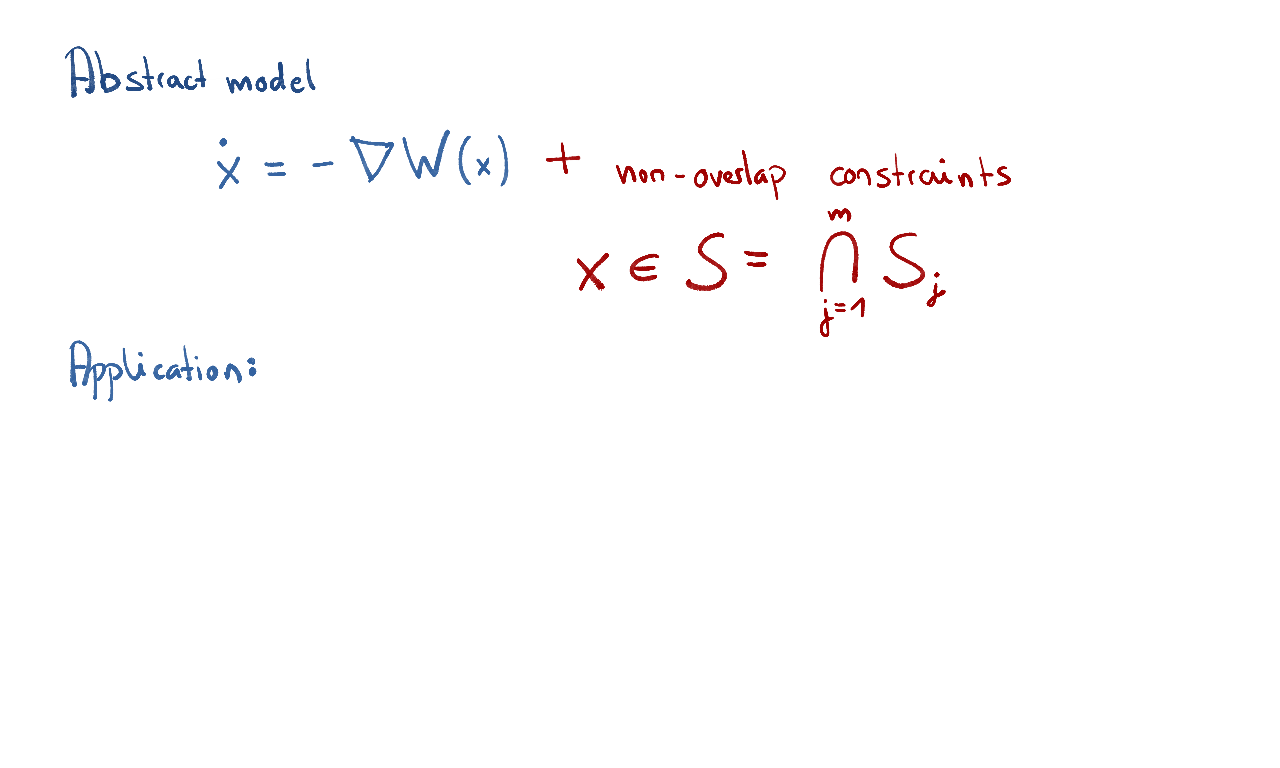 Abstract model
ẋ = - ∇W(x) + non-overlap constraints
x ∈ S = ⋂_{j=1}^{m} S_j
Application: